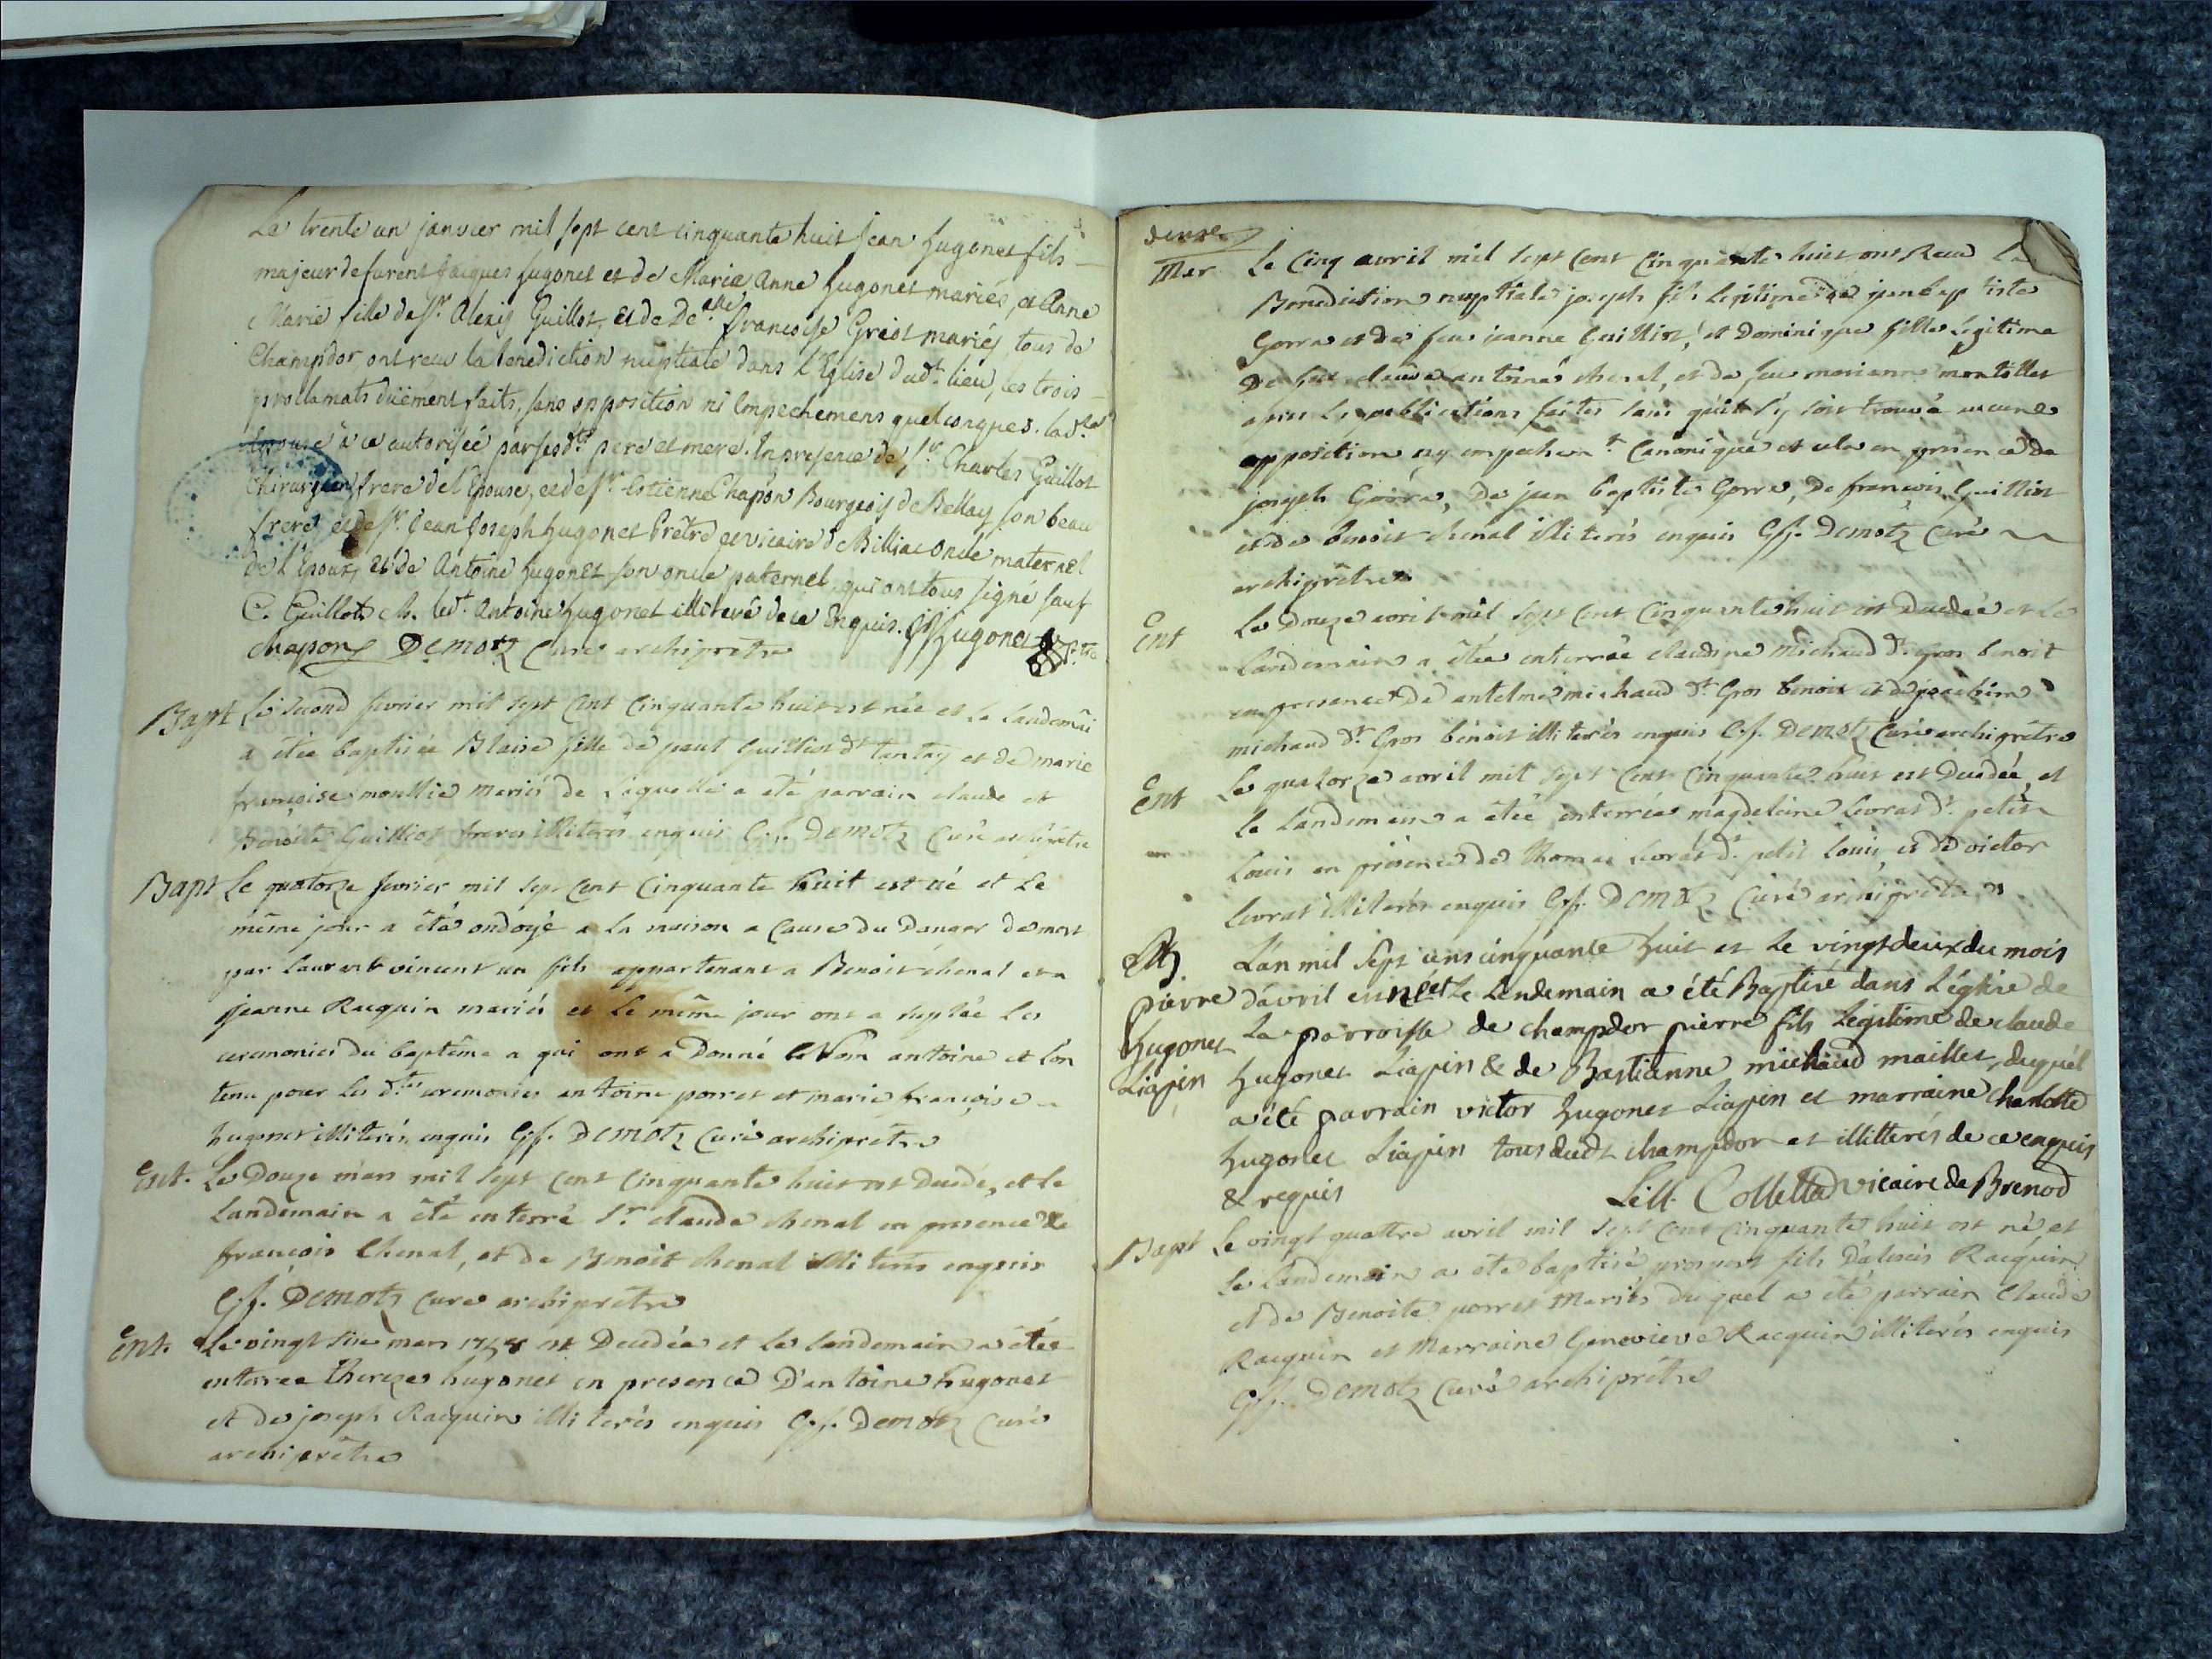 Le trente un janvier mil sept cent cinquante huit Jean hugonet fils
majeur de furent Jacques hugonet et de Marie Anne hugonet mariés, et Anne
Marie fille de Sr. Alexis Guillot, et de Delle francoise Griot mariés tous de
Champdor, ont receu la benediction nuptiale dans l'Eglise dudt. lieu, les trois
proclamats düement faits, sans opposition ni Empechemens quelconques. lad.te
Epouse à ce autorisée par sesdts. pere et mere. En presence de Sr. Charles Guillot
Chirurgien frere de l'Epouse, et de Sr. Estienne Chapon Bourgeois de Bellay son beau
frere et de Sr. Jean Joseph hugonet Prêtre et vicaire de Billiac oncle maternel
de l'Epoux, et de Antoine hugonet son oncle paternel, qui ont tous signé sauf
C. Guillot ch. led. Antoine hugonet illiteré de ce Enquis. JJ hugonet Ptre
chapon Demotz Curé archiprêtre
Bapt Le second fevrier mil sept cent cinquante huit est née et le landemai
a étée baptisée Blaise fille de paul Guilliot dt tantaz et de marie
françoise moullie mariés de laquelle a été parrain claude et
Benoite Guilliot freres illiterés enquis G.f. Demotz Curé archiprêtre
Bapt Le quatorze fevrier mil sept cent cinquante huit est né et le
même jour a été ondoyé a la maison a cause du danger de mort
par laurent vincent un fils appartenant a Benoit chenal et a
jeanne Racquin mariés et le même jour ont a suplée les
ceremonies du baptême a qui ont a donné le Nom antoine et l'on
tenu pour les dtes ceremonies antoine porret et marie françoise
hugonet illiterés enquis G.f. Demotz Curé archiprêtre
Ent. Le Douze mars mil sept cent cinquante huit est decedé, et le
landemain a été enterré Sr. claude chenal en presence de
françois Chenal, et de Benoit chenal illiterés enquis
G.f. Demotz Cure archiprêtre
Ent. Le vingt six mars 1758 est Decedée et le landemain a étée
enterree thereze hugonet en presence D'antoine hugonet
et de joseph Racquin illiterés enquis G.f. Demotz Curé
archiprêtre
deuxe
Mar Le Cinq avril mil sept cent cinquante huit ont Receu la
Benediction nuptiale joseph fils legitime de jean baptiste
Gorra et de feue jeanne Guilliot, et Dominique fille legitime
De feu claude antoine chenal, et de feue marianne montillet
apres les publications faites sans qu'il s'y soit trouvé aucune
opposition ny empechemt. Canonique et cela en presence de
joseph Gorra, De jean baptiste Gorra, De francois Guilliot
et de benoit chenal illiterés enquis G.f. Demotz Curé
archiprêtre
Ent Le Douze avril mil sept cent cinquante huit est Decedée et le
landemain a étée enterrée claudine Michaud dt. Gros benoit
en presence de antelme michaud dt Gros benoit et de joachim
michaud dt. Gros bènoit illiterés enquis G.f. Demotz Curé archiprêtre
Ent Le quatorze avril mil sept cent cinquante huit est Decedée, et
le landemain a étée enterrée magdeleine Levrat dt. petit
Louis en présence de thomas levrat dt. petit Louis, et de victor
levrat illiterés enquis G.f. Demotz Curé archiprêtre
L'an mil sept cens cinquante huit et le vingt deux du mois
pierre d'avril est né et le lendemain a été Baptisé dans L'église de
hugonet La parroisse de champdor pierre fils Légitime de claude
Liapin hugonet Liapin & de Bastianne michaud maillet, duquel
a été parrain victor hugonet Liapin et marraine charlotte
hugonet Liapin tous dudt champdor et illitterés de ce enquis
& requis Collettad vicaire de Brenod
Bapt Le vingt quattre avril mil sept cent cinquante huit est né et
le landemain a été baptisé prosport fils D'alexis Racquin
et de Benoite porret Mariés duquel a été parrain Claude
Racquin et Marraine Genevieve Racquin illiterés enquis
G.f. Demotz Curé archiprêtre